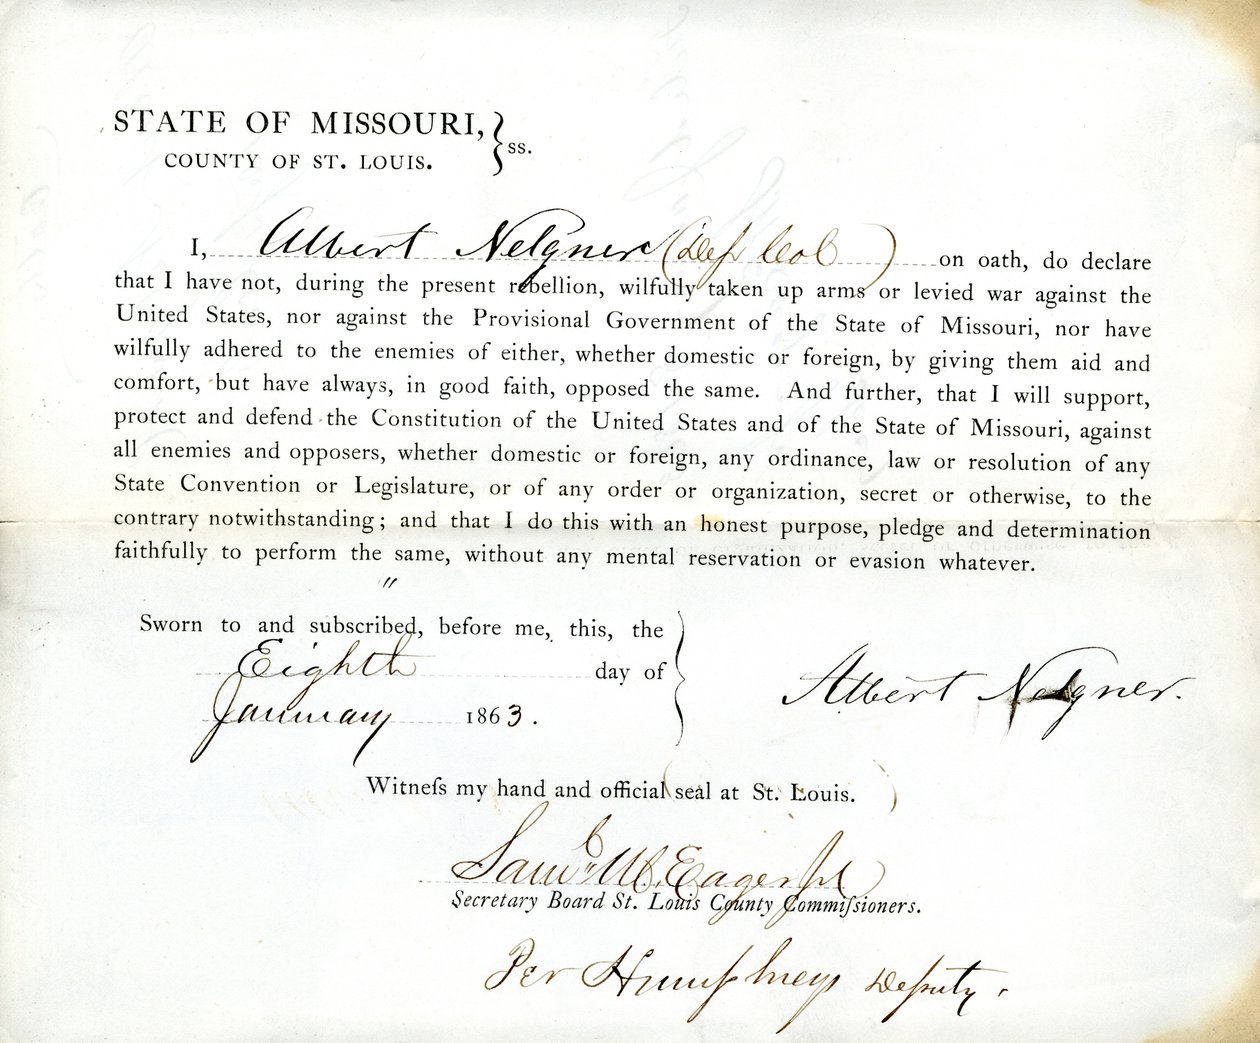 STATE OF MISSOURI, } ss.
COUNTY OF ST. LOUIS.
I, Albert Nelgner (Dep Col) on oath, do declare
that I have not, during the present rebellion, wilfully taken up arms or levied war against the
United States, nor against the Provisional Government of the State of Missouri, nor have
wilfully adhered to the enemies of either, whether domestic or foreign, by giving them aid and
comfort, but have always, in good faith, opposed the same. And further, that I will support,
protect and defend the Constitution of the United States and of the State of Missouri, against
all enemies and opposers, whether domestic or foreign, any ordinance, law or resolution of any
State Convention or Legislature, or of any order or organization, secret or otherwise, to the
contrary notwithstanding; and that I do this with an honest purpose, pledge and determination
faithfully to perform the same, without any mental reservation or evasion whatever.
"
Sworn to and subscribed, before me, this, the
Eighth day of
January 1863.
Albert Nelgner.
Witneſs my hand and official seal at St. Louis.
Saml. W. Eager Jr
Secretary Board St. Louis County Commiſsioners.
Per Humphreys Deputy.